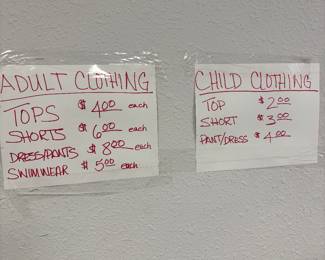 ADULT CLOTHING
TOPS $4.00 each
SHORTS $6.00 each
DRESS/PANTS $8.00 each
SWIMWEAR $5.00 each
CHILD CLOTHING
TOP $2.00
SHORT $3.00
PANT/DRESS $4.00